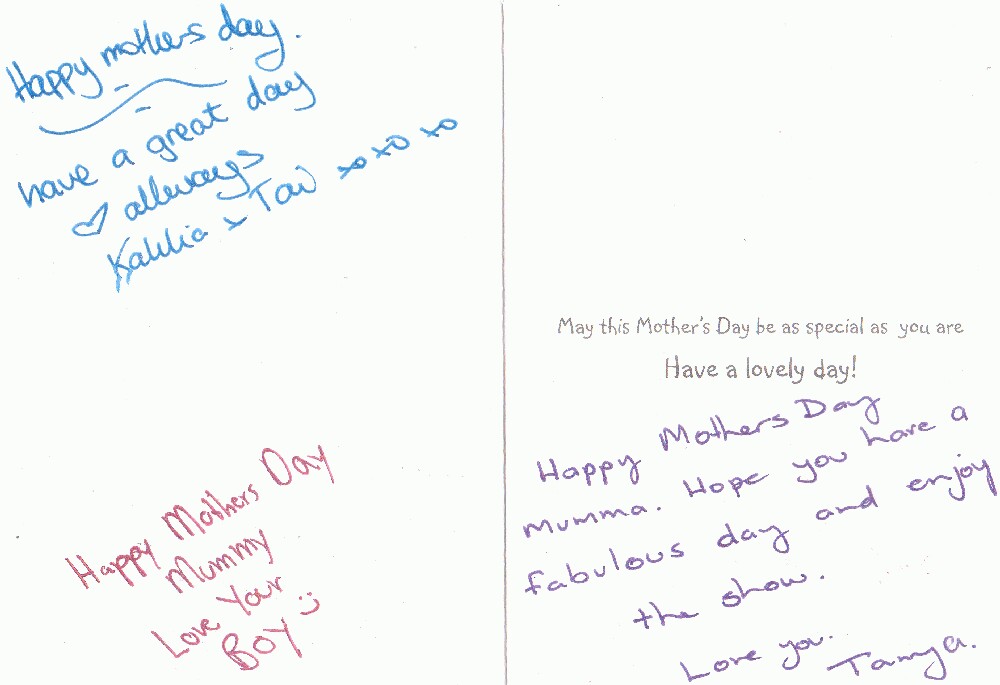 Happy mothers day.
have a great day
♡ allways
Kahlia x Tai xo xo xo
Happy Mothers Day
Mummy
Love Your
BOY :)
May this Mother's Day be as special as you are
Have a lovely day!
Happy Mothers Day
Mumma. Hope you have a
fabulous day and enjoy
the show.
Love you.
Tamya.